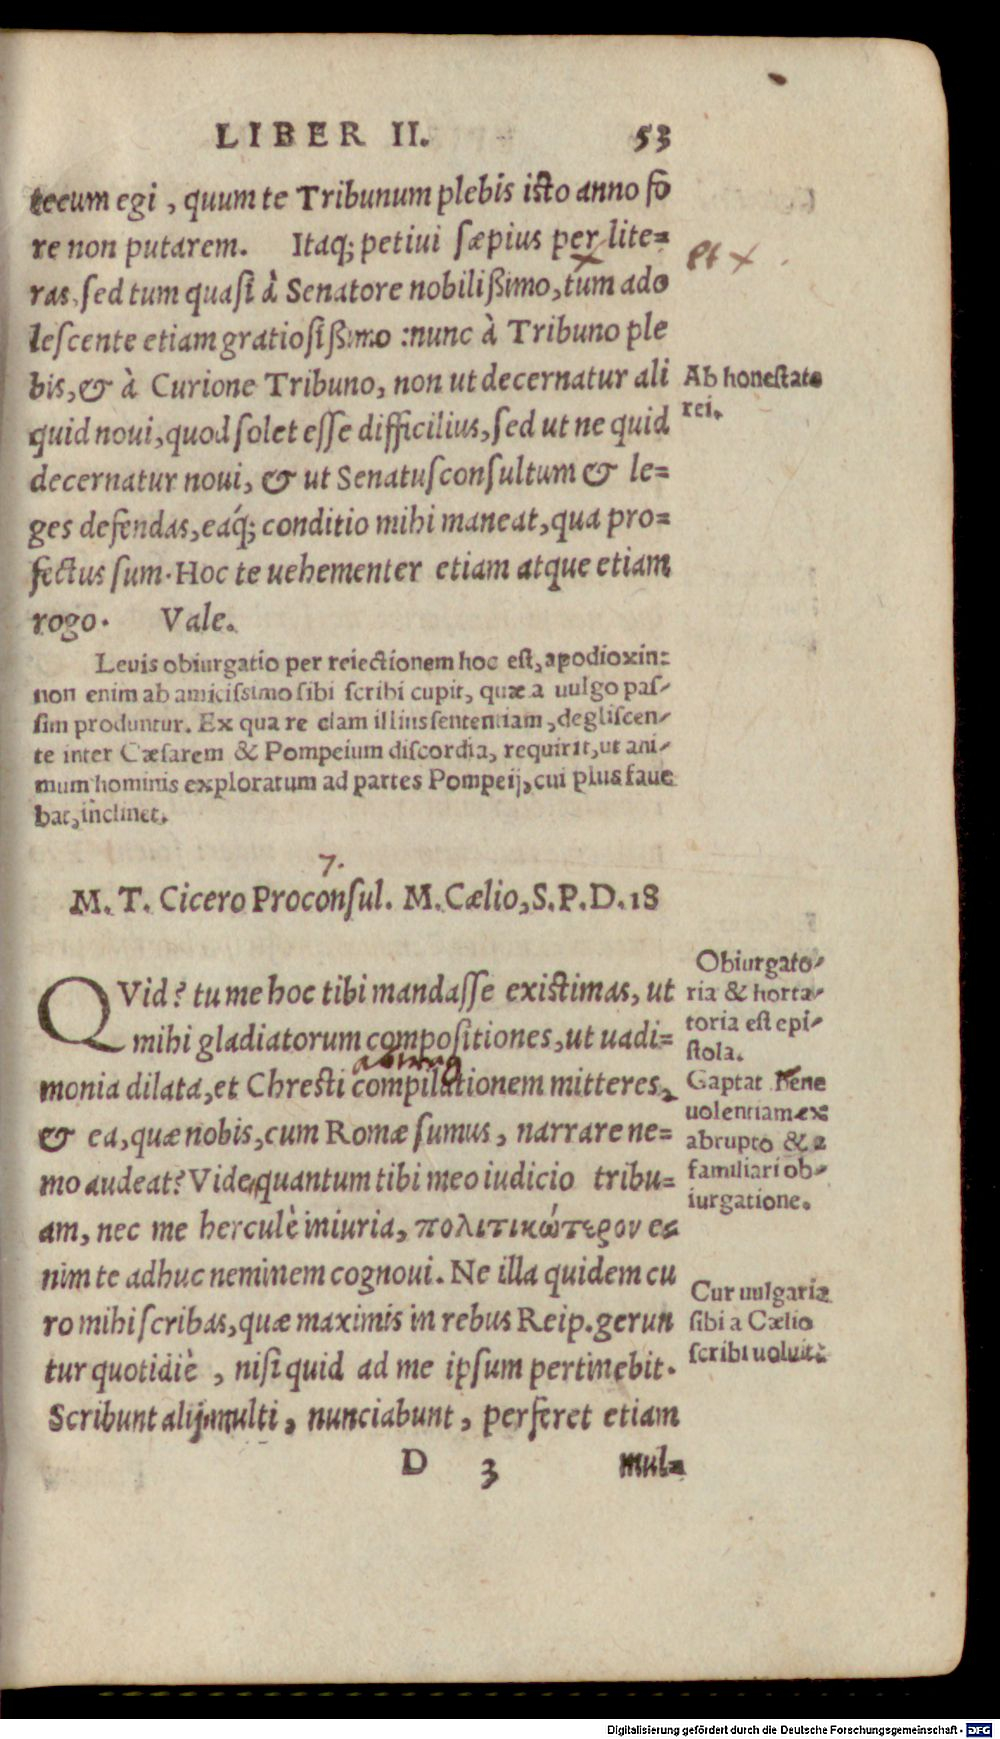 LIBER II. 53
tecum egi, quum te Tribunum plebis isto anno fo
re non putarem. Itaq; petiui sæpius per lite=
ras, sed tum quasi à Senatore nobilißimo, tum ado
lescente etiam gratiosißimo : nunc à Tribuno ple
bis, & à Curione Tribuno, non ut decernatur ali
quid noui, quod solet esse difficilius, sed ut ne quid
decernatur noui, & ut Senatusconsultum & le=
ges defendas, eáq; conditio mihi maneat, qua pro=
fectus sum. Hoc te uehementer etiam atque etiam
rogo. Vale.
Et x
Ab honestate
rei.
Leuis obiurgatio per reiectionem hoc est, apodioxin:
non enim ab amicissimo sibi scribi cupit, quæ a uulgo pas-
sim produntur. Ex qua re clam illius sententiam, degliscen-
te inter Cæsarem & Pompeium discordia, requirit, ut ani-
mum hominis exploratum ad partes Pompeij, cui plus faue
bat, inclinet.
7.
M. T. Cicero Proconsul. M. Cælio, S. P. D. 18
QVid? tu me hoc tibi mandasse existimas, ut
mihi gladiatorum compositiones, ut uadi=
monia dilata, et Chresti compilationem mitteres,
& ea, quæ nobis, cum Romæ sumus, narrare ne=
mo audeat? Vide, quantum tibi meo iudicio tribu=
am, nec me herculè iniuria, πολιτικώτερον e=
nim te adhuc neminem cognoui. Ne illa quidem cu
ro mihi scribas, quæ maximis in rebus Reip. gerun
tur quotidiè, nisi quid ad me ipsum pertinebit.
Scribunt alij multi, nunciabunt, perferet etiam
D 3 mul=
Obiurgato-
ria & horta-
toria est epi-
stola.
Captat bene
uolentiam ex
abrupto & a
familiari ob-
iurgatione.
Cur uulgaria
sibi a Cælio
scribi uoluit.
Digitalisierung gefördert durch die Deutsche Forschungsgemeinschaft - DFG